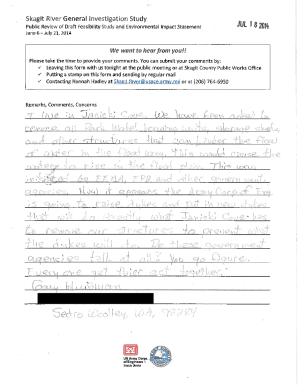 Skagit River General Investigation Study
Public Review of Draft Feasibility Study and Environmental Impact Statement
June 6 – July 21, 2014
JUL 18 2014
We want to hear from you!!
Please take the time to provide your comments. You can submit your comments by:
✓ Leaving this form with us tonight at the public meeting or at Skagit County Public Works Office
✓ Putting a stamp on this form and sending by regular mail
✓ Contacting Hannah Hadley at Skagit.River@usace.army.mil or at (206) 764-6950
Remarks, Comments, Concerns
I live in Janicki Cove. We have been asked to
remove all Park Model
and other structures that can hinder the flow
of water in the flood way, this would cause the
water to rise in the flood
by FEMA, EPA and other government
agencies. Now it appears the Army Corp of Eng
is going to raise dikes and put in new dikes
that will do exactly what Janicki Cove has
to remove our structures to prevent what
the dikes will do. Do these government
agencies talk at all? You go figure.
Every one get thier act together.
Gary
Sedro Woolley, WA, 98284
US Army Corps
of Engineers
Seattle District